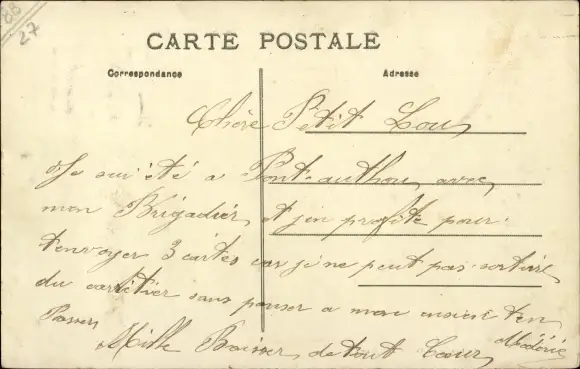 88
27
CARTE POSTALE
Correspondance
Adresse
Chère Petit Lou,
Je suis été a Pont-authou, avec
mon Brigadier, et j'en profite pour
t'envoyer 3 cartes car je ne peut pas sortire
du cartier sans penser a mon ancien ten
Passer
Mille Baiser de tout Cœur
Médéric